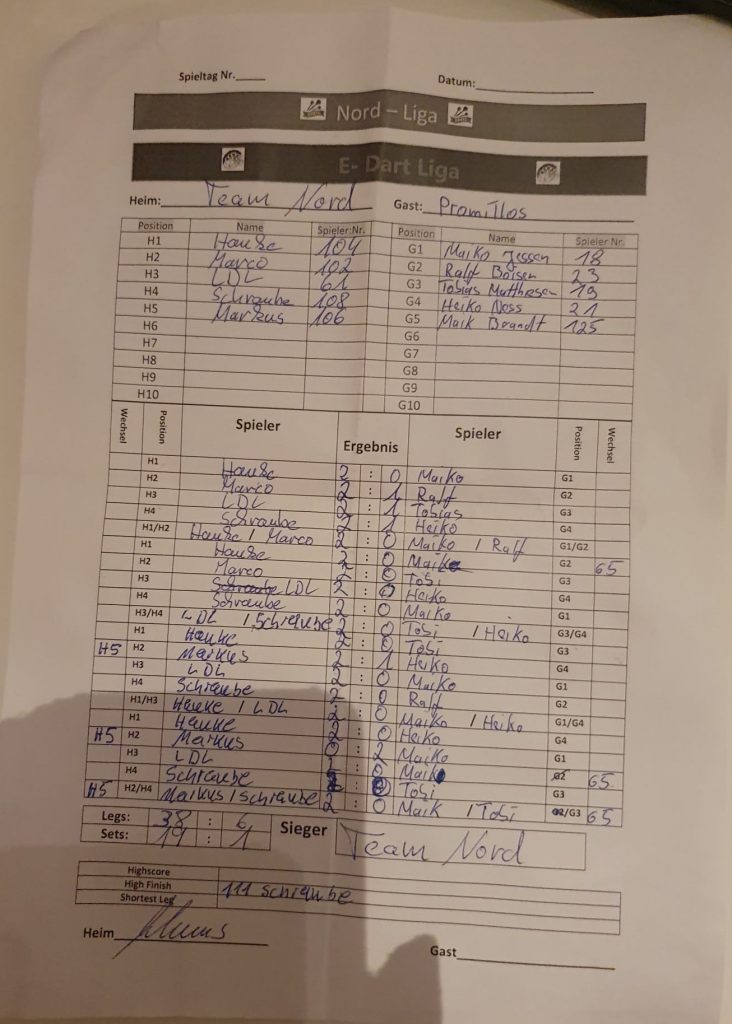 Spieltag Nr. Datum:
Nord – Liga
E- Dart Liga
Heim: Team Nord Gast: Promillos
Position Name Spieler:Nr. Position Name Spieler Nr.
H1 Hauke 104 G1 Maiko Jessen 18
H2 Marco 102 G2 Ralf Boisen 23
H3 LDL 61 G3 Tobias Matthiesen 19
H4 Schraube 108 G4 Heiko Noss 21
H5 Markus 106 G5 Maik Brandt 125
H6 G6
H7 G7
H8 G8
H9 G9
H10 G10
Wechsel Position Spieler Ergebnis Spieler Position Wechsel
H1 Hauke 2 : 0 Maiko G1
H2 Marco 2 : 1 Ralf G2
H3 LDL 2 : 1 Tobias G3
H4 Schraube 2 : 1 Heiko G4
H1/H2 Hauke / Marco 2 : 0 Maiko / Ralf G1/G2
H1 Hauke 2 : 0 Maik G2 G5
H2 Marco 2 : 0 Tobi G3
H3 LDL 2 : 0 Heiko G4
H4 Schraube 2 : 0 Maiko G1
H3/H4 LDL / Schraube 2 : 0 Tobi / Heiko G3/G4
H1 Hauke 2 : 0 Tobi G3
H5 H2 Markus 2 : 1 Heiko G4
H3 LDL 2 : 0 Maiko G1
H4 Schraube 2 : 0 Ralf G2
H1/H3 Hauke / LDL 2 : 0 Maiko / Heiko G1/G4
H1 Hauke 2 : 0 Heiko G4
H5 H2 Markus 0 : 2 Maiko G1
H3 LDL : 0 Maik G2 G5
H4 Schraube : 0 Tobi G3
H5 H2/H4 Markus / Schraube 2 : 0 Maik / Tobi /G3 G5
Legs: 38 : 6
Sets: 19 : 1
Sieger Team Nord
Highscore
High Finish 111 Schraube
Shortest Leg
Heim
Gast